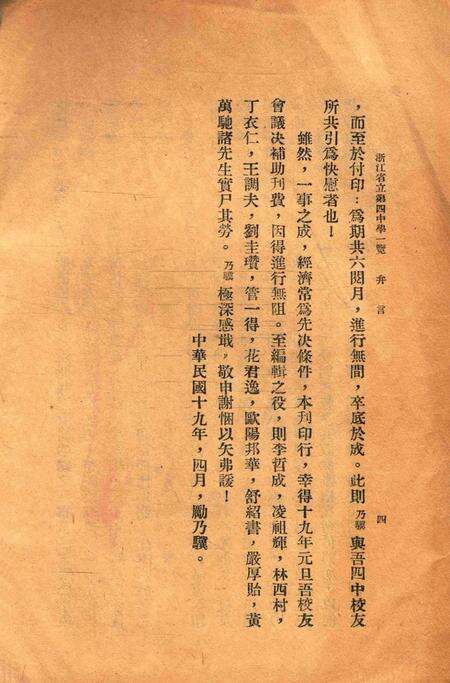 浙江省立第四中學一覽　弁言　四
，而至於付印：爲期共六閱月，進行無間，卒底於成。此則乃驥與吾四中校友
所共引爲快慰者也！
雖然，一事之成，經濟常爲先決條件，本刊印行，幸得十九年元旦吾校友
會議决補助刊費，因得進行無阻。至編輯之役，則李哲成，凌祖輝，林西村，
丁衣仁，王調夫，劉圭瓚，管一得，花君逸，歐陽邦華，舒紹書，嚴厚貽，黃
萬馳諸先生實尸其勞。乃驥極深感戢，敬申謝悃以矢弗諼！
中華民國十九年，四月，勵乃驥。